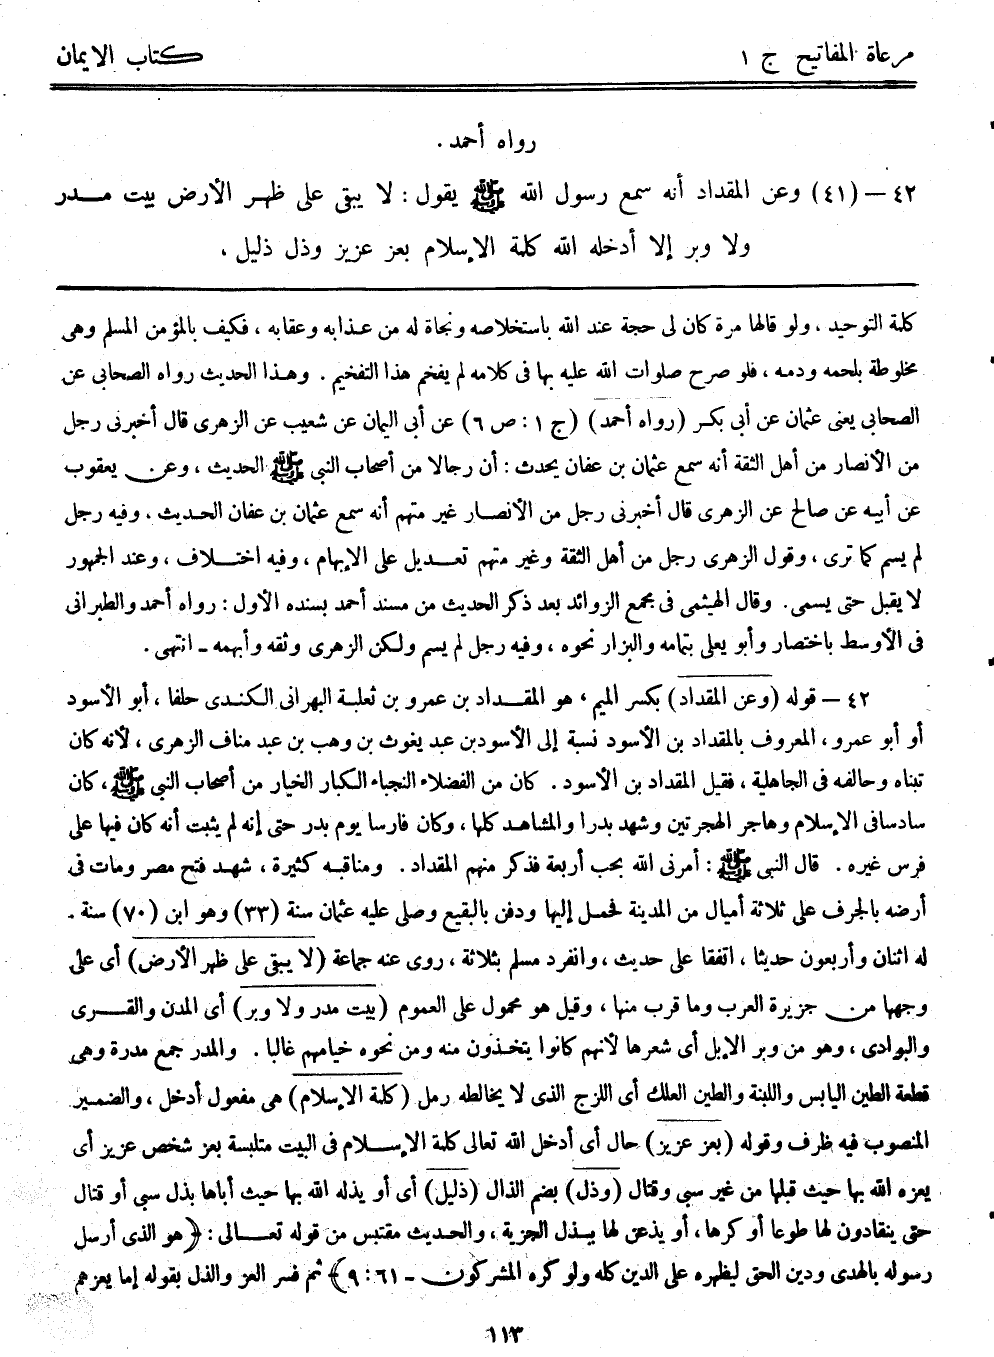 مرعاة المفاتيح ج ١
كتاب الايمان
رواه أحمد .
٤٢ – (٤١) وعن المقداد أنه سمع رسول الله ﷺ يقول : لا يبقى على ظهر الأرض بيت مدر
ولا وبر إلا أدخله الله كلمة الإسلام بعز عزيز وذل ذليل ،
كلمة التوحيد ، ولو قالها مرة كان لى حجة عند الله باستخلاصه ونجاة له من عذابه وعقابه ، فكيف بالمؤمن المسلم وهى
مخلوطة بلحمه ودمه ، فلو صرح صلوات الله عليه بها فى كلامه لم يفخم هذا التفخيم . وهذا الحديث رواه الصحابي عن
الصحابي يعنى عثمان عن أبي بكر (رواه أحمد) (ج ١ : ص ٦) عن أبى اليمان عن شعيب عن الزهرى قال أخبرنى رجل
من الأنصار من أهل الثقة أنه سمع عثمان بن عفان يحدث : أن رجالا من أصحاب النبي ﷺ الحديث ، وعن يعقوب
عن أبيه عن صالح عن الزهرى قال أخبرنى رجل من الأنصار غير متهم أنه سمع عثمان بن عفان الحديث . وفيه رجل
لم يسم كما ترى ، وقول الزهرى رجل من أهل الثقة وغير متهم تعديل على الإبهام ، وفيه اختلاف ، وعند الجمهور
لا يقبل حتى يسمى . وقال الهيثمى فى مجمع الزوائد بعد ذكر الحديث من مسند أحمد بسنده الأول : رواه أحمد والطبرانى
فى الأوسط باختصار وأبو يعلى بتمامه والبزار نحوه ، وفيه رجل لم يسم ولكن الزهرى وثقه وأبهمه – انتهى .
٤٢ – قوله (وعن المقداد) بكسر الميم ، هو المقداد بن عمرو بن ثعلبة البهرانى الكندى حلفا ، أبو الأسود
أو أبو عمرو ، المعروف بالمقداد بن الأسود نسبة إلى الأسود بن عبد يغوث بن وهب بن عبد مناف الزهرى ، لأنه كان
تبناه وحالفه فى الجاهلية ، فقيل المقداد بن الأسود . كان من الفضلاء النجباء الكبار الخيار من أصحاب النبي ﷺ ، كان
سادسا فى الإسلام وهاجر الهجرتين وشهد بدرا والمشاهد كلها ، وكان فارسا يوم بدر حتى إنه لم يثبت أنه كان فيها على
فرس غيره . قال النبي ﷺ : أمرنى الله بحب أربعة فذكر منهم المقداد . ومناقبه كثيرة ، شهد فتح مصر ومات فى
أرضه بالجرف على ثلاثة أميال من المدينة فحمل إليها ودفن بالبقيع وصلى عليه عثمان سنة (٣٣) وهو ابن (٧٠) سنة .
له اثنان وأربعون حديثا ، اتفقا على حديث ، وانفرد مسلم بثلاثة ، روى عنه جماعة (لا يبقى على ظهر الأرض) أى على
وجهها من جزيرة العرب وما قرب منها ، وقيل هو محمول على العموم (بيت مدر ولا وبر) أى المدن والقرى
والبوادى ، وهو من وبر الإبل أى شعرها لأنهم كانوا يتخذون منه ومن نحوه خيامهم غالبا . والمدر جمع مدرة وهى
قطعة الطين اليابس واللبنة والطين العلك أى اللزج الذى لا يخالطه رمل (كلمة الإسلام) هى مفعول أدخل ، والضمير
المنصوب فيه ظرف وقوله (بعز عزيز) حال أى أدخل الله تعالى كلمة الإسلام فى البيت متلبسة بعز شخص عزيز أى
يعزه الله بها حيث قبلها من غير سبي وقتال (وذل) بضم الذال (ذليل) أى أو يذله الله بها حيث أباها بذل سبي أو قتال
حتى ينقادون لها طوعا أو كرها ، أو يذعن لها ببذل الجزية ، والحديث مقتبس من قوله تعالى : ﴿هو الذى أرسل
رسوله بالهدى ودين الحق ليظهره على الدين كله ولو كره المشركون – ٦١ : ٩﴾ ثم فسر العز والذل بقوله إما يعزهم
١١٣